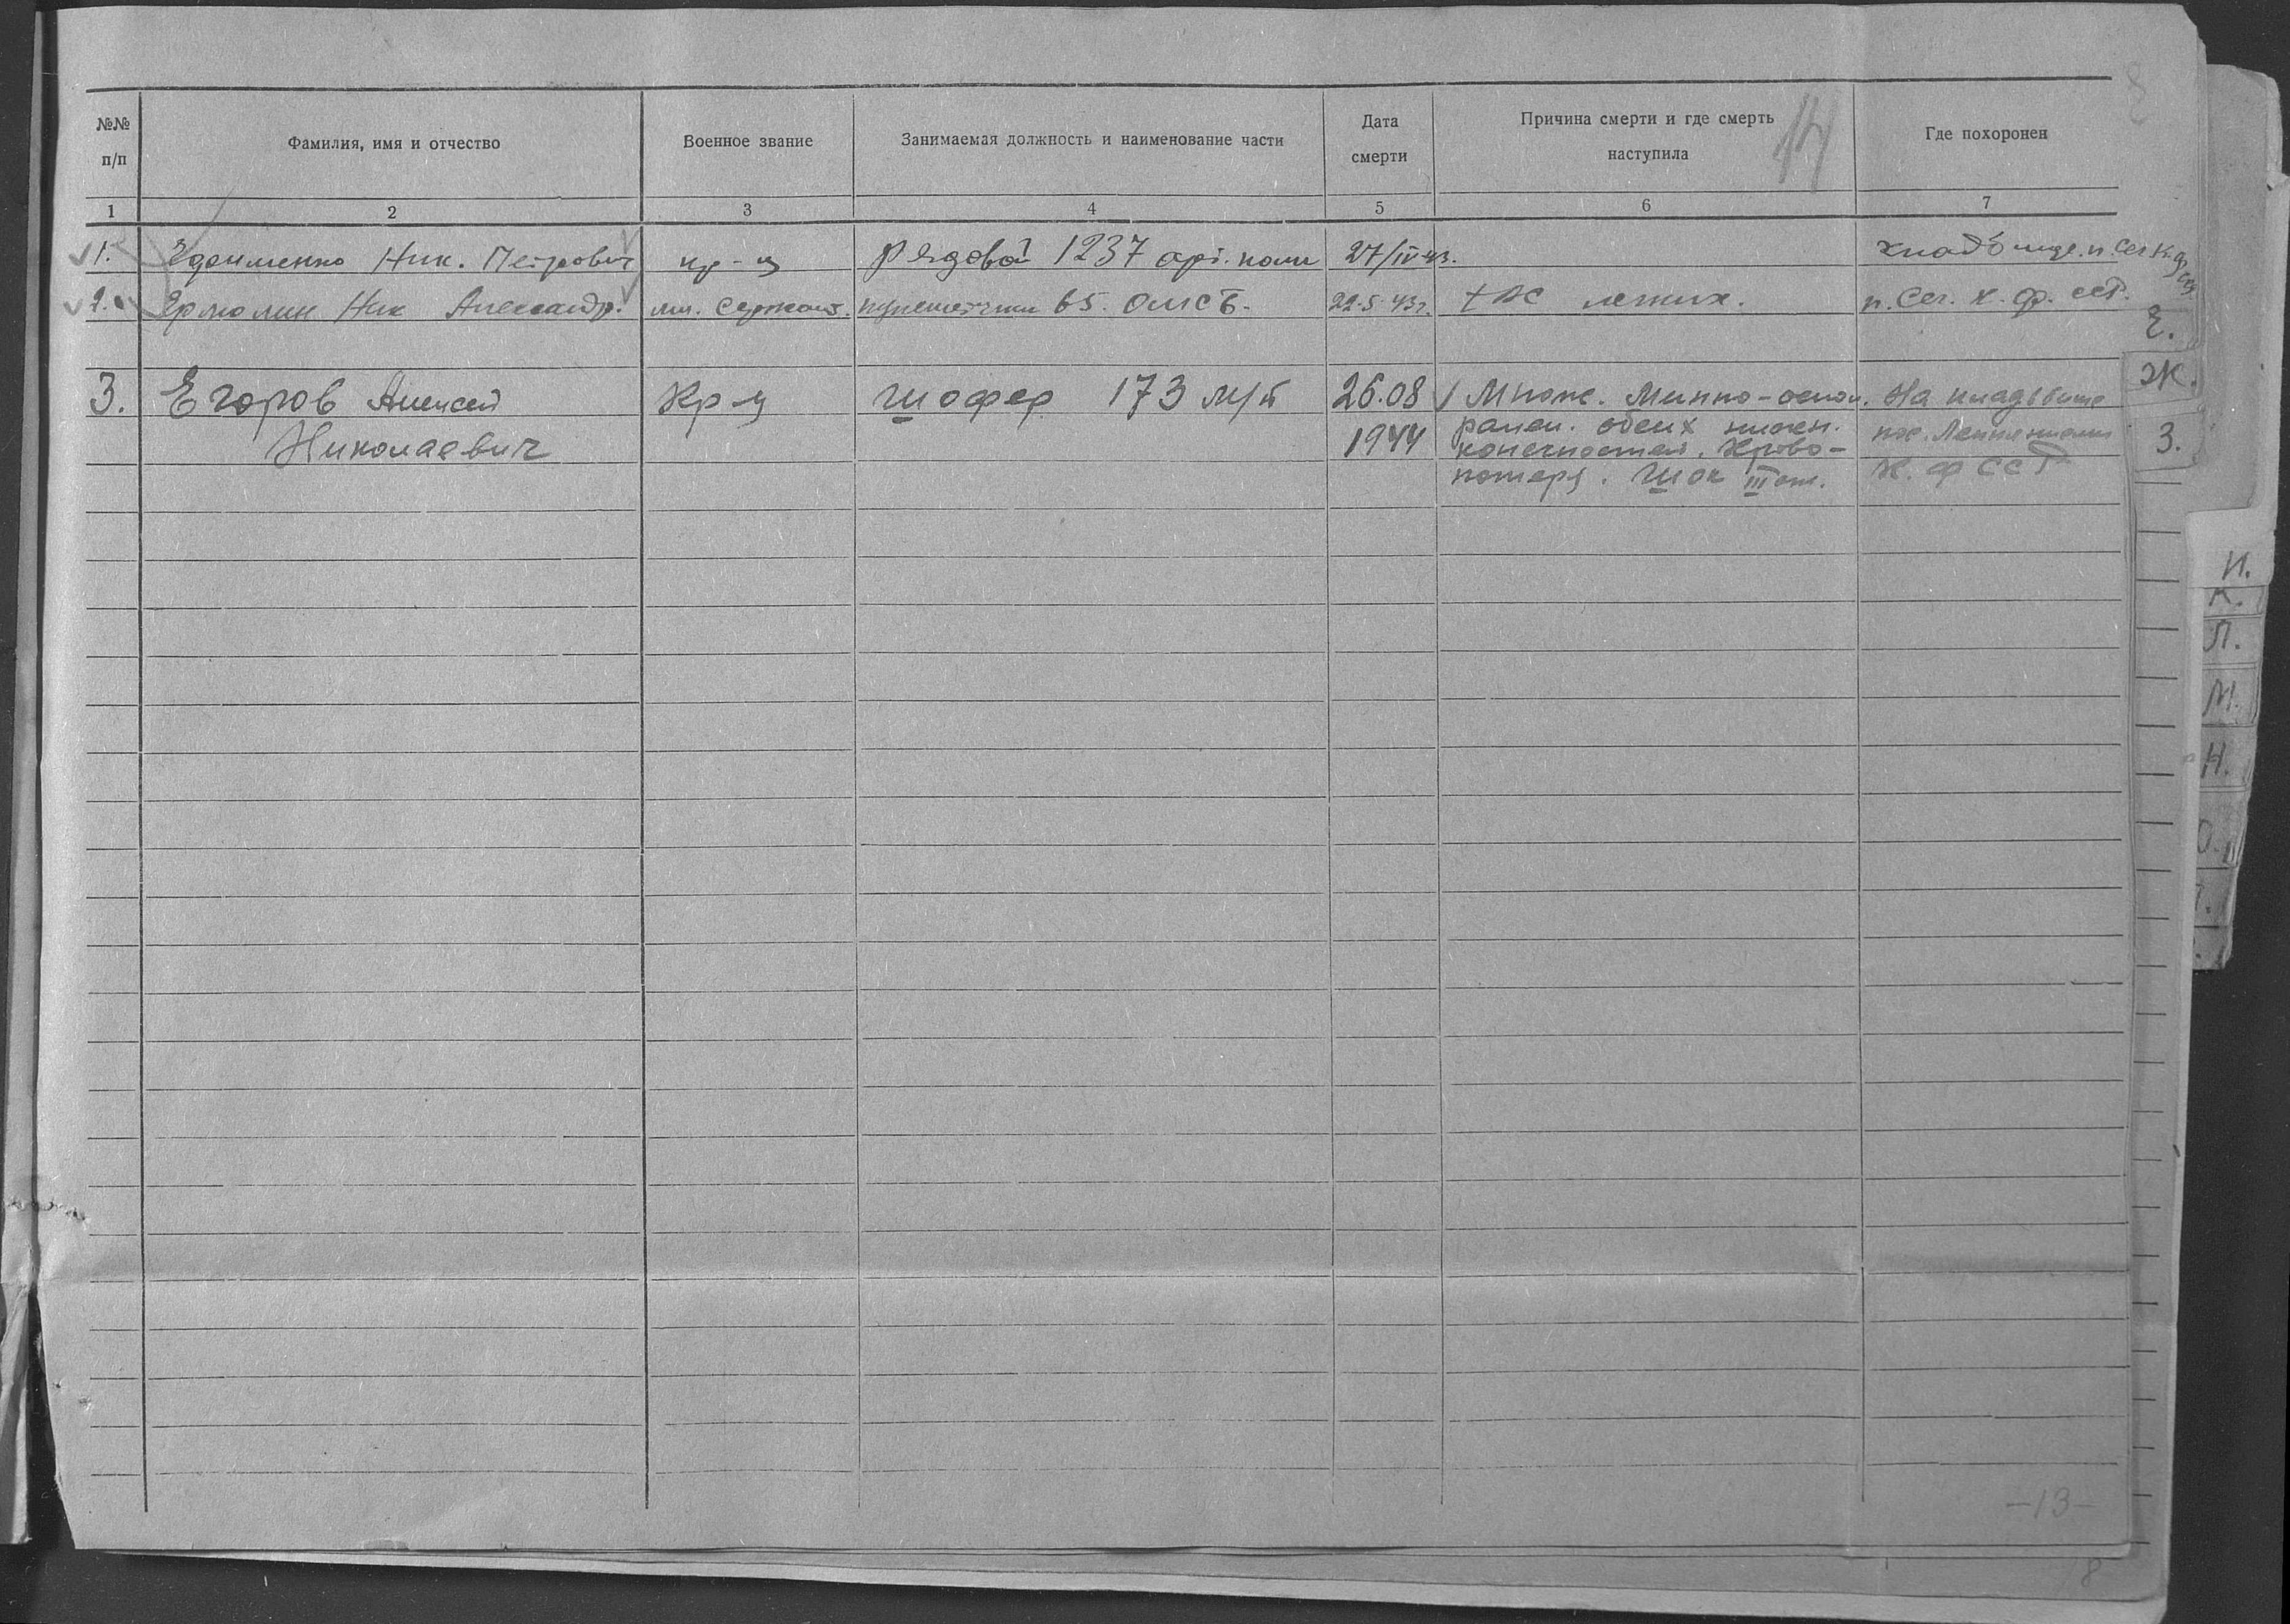 №№ п/п Фамилия, имя и отчество Военное звание Занимаемая должность и наименование части Дата смерти Причина смерти и где смерть наступила Где похоронен
14
8
1 2 3 4 5 6 7
1. Ник. Петрович кр-ц рядовой 1237 арт. полк 27/IV 43. кладбище п. Сег. К. Ф. ССР
2. Ермолин Ник Александр. мл. сержант. пулеметчик 65. ОЛСБ. 22.5.43г. TBC легких. п. Сег. К. Ф. ССР.
3. Егоров Алексей Кр-ц шофер 173 м/б 26.08 Множ. Минно-оскол. На кладбище
Николаевич 1944 ранен. обеих нижн. пос.
конечностей. Крово- К. Ф ССР
потеря. Шок III ст.
Е.
Ж.
З.
И.
К.
Л.
М.
Н.
О.
-13-
8